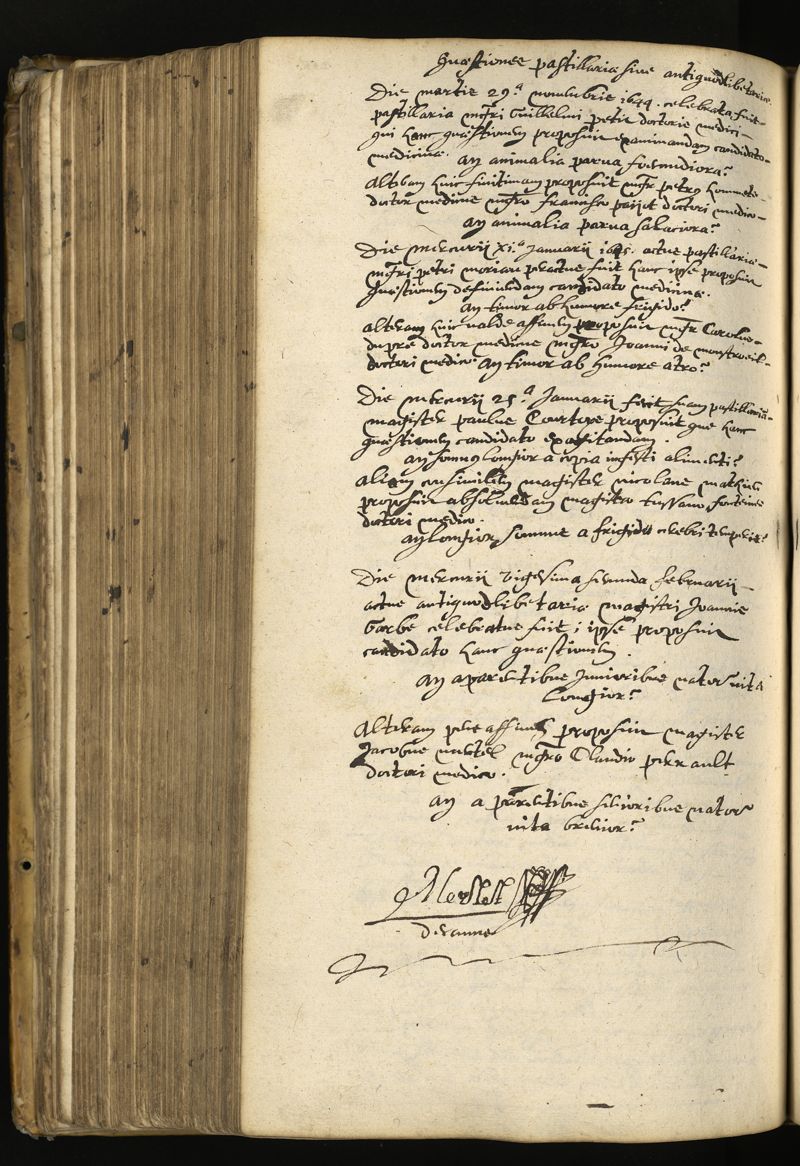 Quæstiones pastillariæ siue antiquodlibetariæ
Die martis 29.ª nouembris 1644. celebrata fuit
pastillaria mgri Guilhelmi petit doctoris medici
qui hanc quæstionem proposuit examinandam candidato
medicinæ. an animalia parua fœcundiora?
Alteram huic finitimam proposuit mgr petrus
doctor medicinæ mgro francisco doctori medico
an animalia parua salaciora?
Die mercurij xi.ª Januarij 1645. actus pastillariæ
mgri petri moriau peractus fuit hanc ipse proposuit
quæstionem definiendam candidato medicinæ.
an timor ab humore frigido?
alteram huic valde affinem proposuit mgr Carolus
dupré doctor medicinæ mgro Joanni de monstroeil
doctori medico an timor ab humore atro?
Die mercurij 25.ª Januarij fecit suam pastillariam
magister paulus Courtois proposuit que hanc
quæstionem candidato exagitandam.
an somnus longior a copia ingesti alimenti?
aliam consimilem magister nicolaus mathieu
proposuit absoluendam magistro tussano fontaine
doctori medico.
an longior somnus a frigida cerebri temperie?
Die mercurij vigesima secunda februarij
actus antiquodlibetariæ magistri Joannis
Garbe celebratus fuit, ipse proposuit
candidato hanc quæstionem.
an a parentibus junioribus natorum vita
longior?
Alteram pene affinem proposuit magister
Jacobus mentel mgro Claudio perrault
doctori medico.
an a parentibus senioribus natorum
vita breuior?
Merlet
decanus